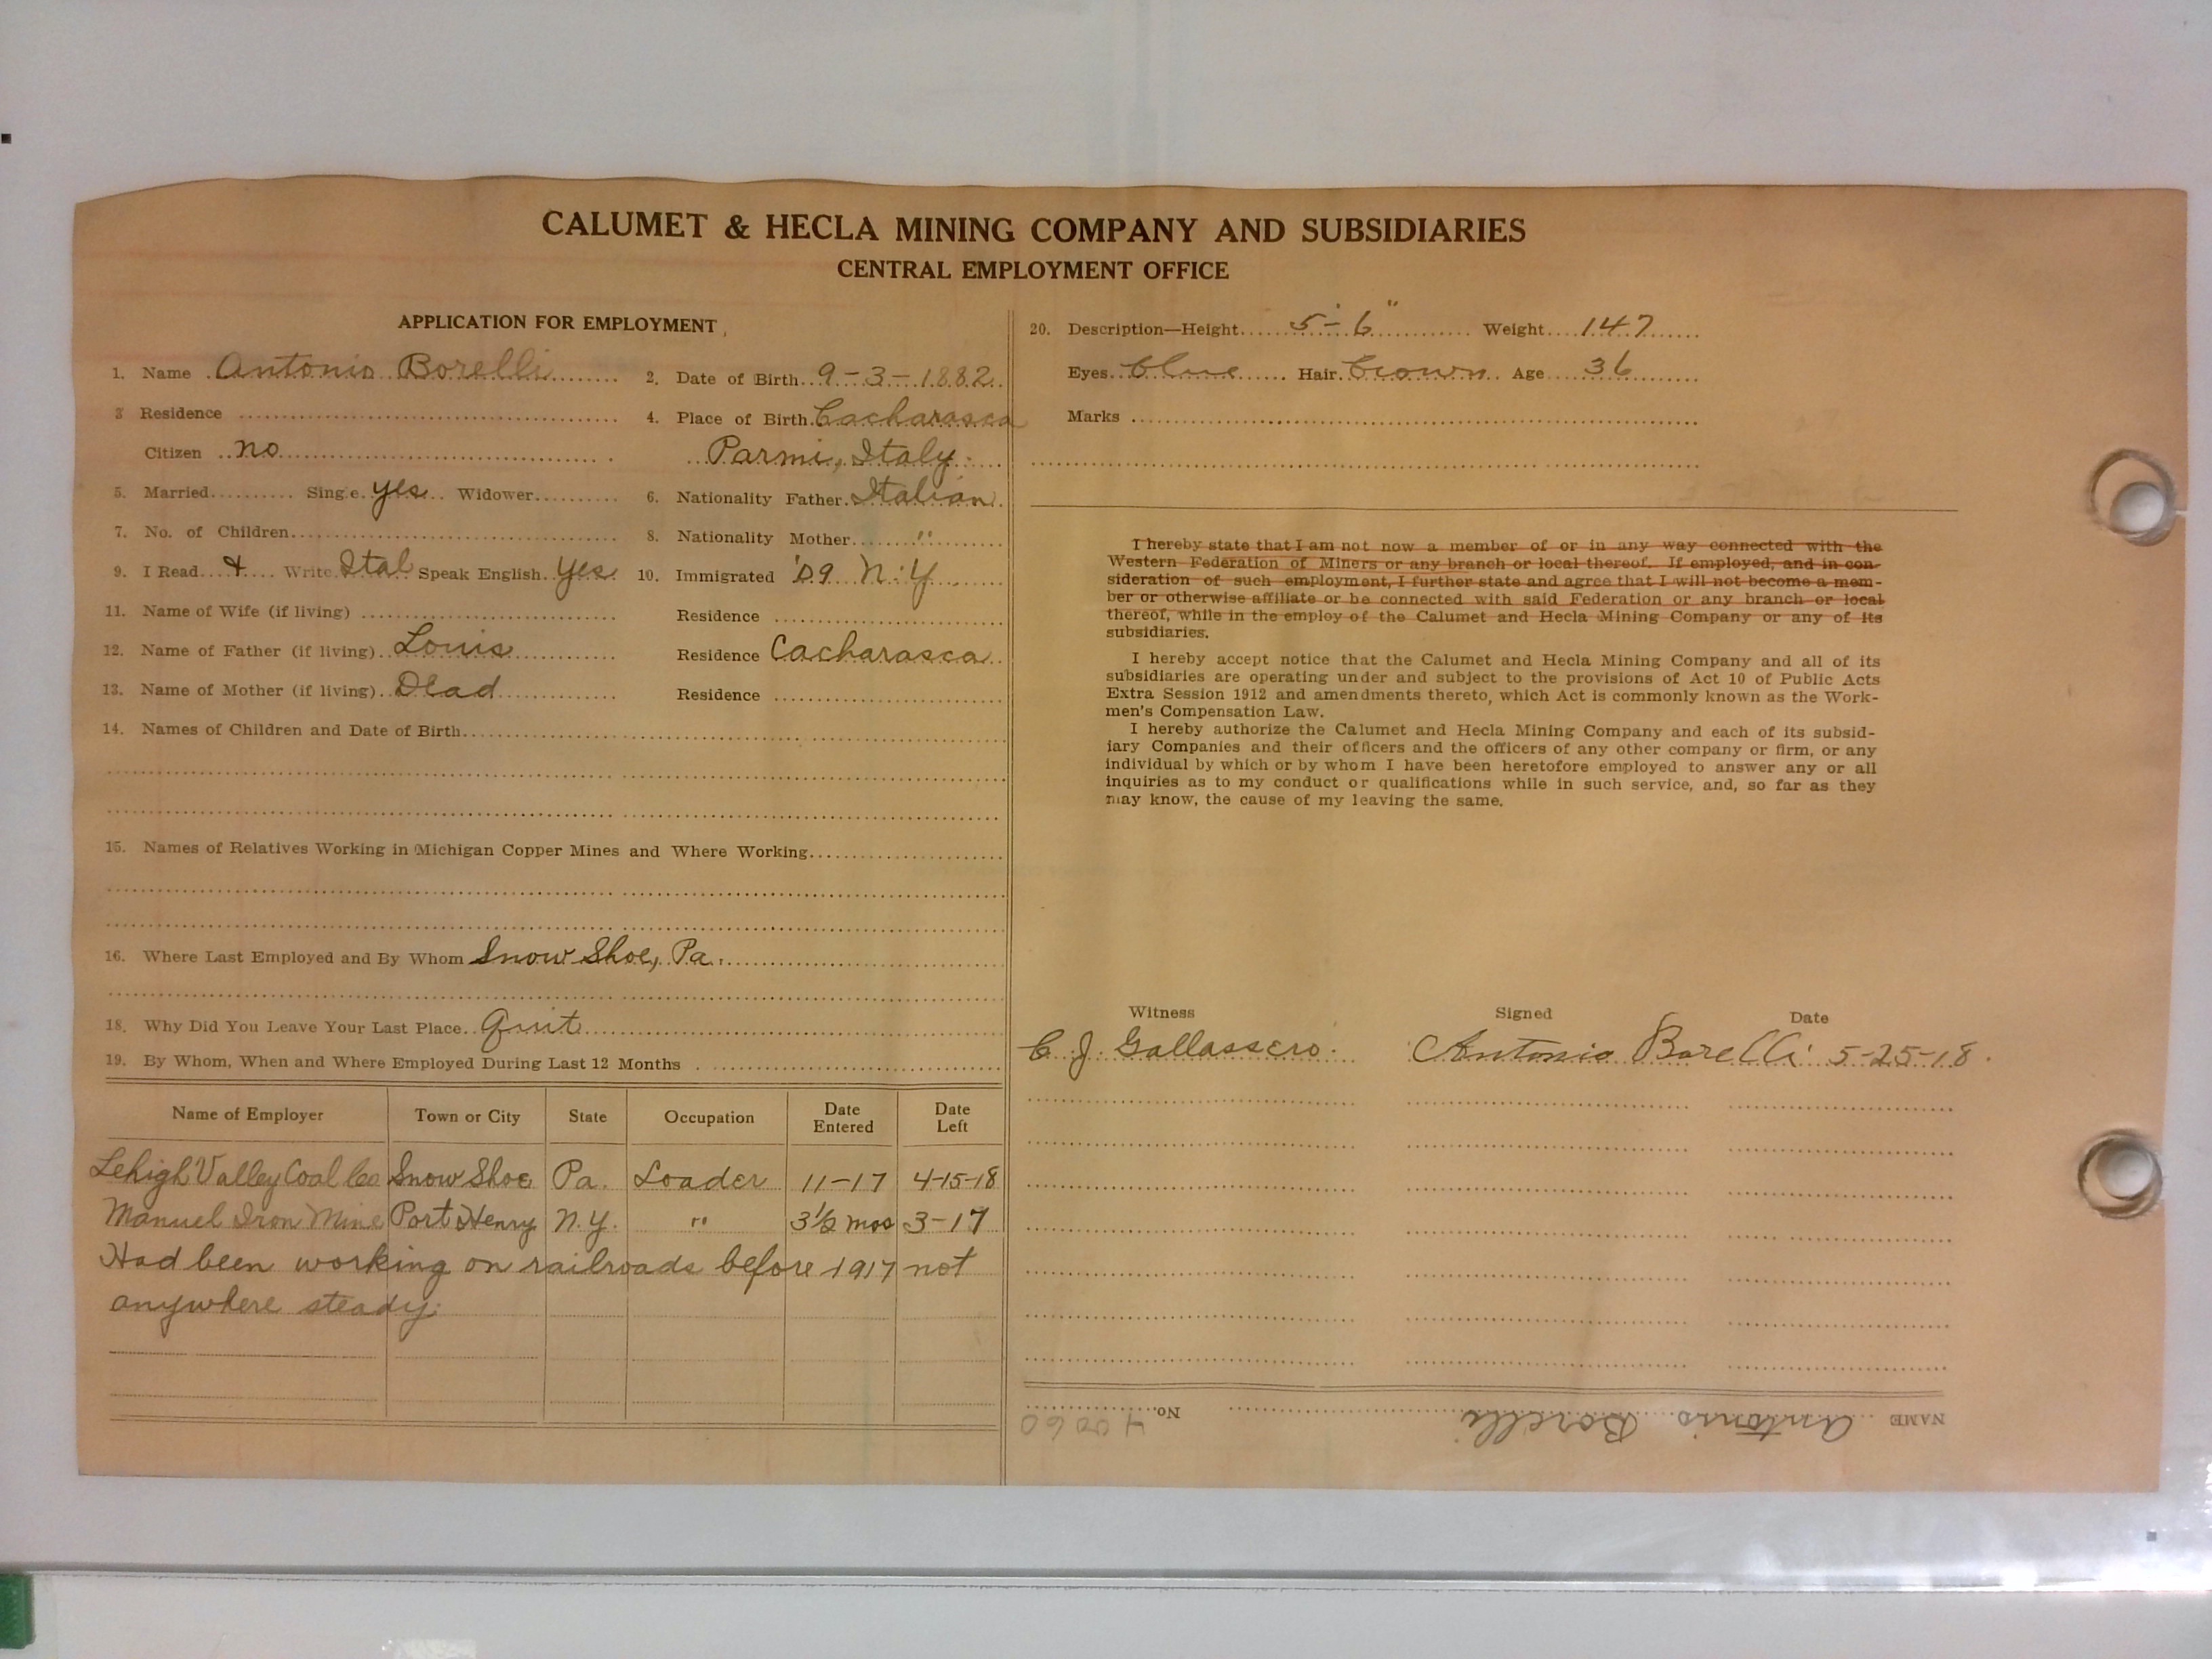 CALUMET & HECLA MINING COMPANY AND SUBSIDIARIES
CENTRAL EMPLOYMENT OFFICE
APPLICATION FOR EMPLOYMENT
1. Name Antonio Borelli 2. Date of Birth 9-3-1882
3 Residence 4. Place of Birth Cacharasca
Citizen no Parmi, Italy
5. Married Single yes Widower 6. Nationality Father Italian
7. No. of Children 8. Nationality Mother "
9. I Read & Write Ital Speak English yes 10. Immigrated '09 N.Y.
11. Name of Wife (if living) Residence
12. Name of Father (if living) Louis Residence Cacharasca
13. Name of Mother (if living) Dead Residence
14. Names of Children and Date of Birth
15. Names of Relatives Working in Michigan Copper Mines and Where Working
16. Where Last Employed and By Whom Snow Shoe, Pa.
18. Why Did You Leave Your Last Place Quit
19. By Whom, When and Where Employed During Last 12 Months
Name of Employer Town or City State Occupation Date Entered Date Left
Lehigh Valley Coal Co Snow Shoe Pa. Loader 11-17 4-15-18
Manuel Iron Mine Port Henry N.Y. " 3½ mos 3-17
Had been working on railroads before 1917 not
anywhere steady.
20. Description—Height 5'-6" Weight 147
Eyes blue Hair brown Age 36
Marks
I hereby state that I am not now a member of or in any way connected with the
Western Federation of Miners or any branch or local thereof. If employed, and in con-
sideration of such employment, I further state and agree that I will not become a mem-
ber or otherwise affiliate or be connected with said Federation or any branch or local
thereof, while in the employ of the Calumet and Hecla Mining Company or any of its
subsidiaries.
I hereby accept notice that the Calumet and Hecla Mining Company and all of its
subsidiaries are operating under and subject to the provisions of Act 10 of Public Acts
Extra Session 1912 and amendments thereto, which Act is commonly known as the Work-
men's Compensation Law.
I hereby authorize the Calumet and Hecla Mining Company and each of its subsid-
iary Companies and their officers and the officers of any other company or firm, or any
individual by which or by whom I have been heretofore employed to answer any or all
inquiries as to my conduct or qualifications while in such service, and, so far as they
may know, the cause of my leaving the same.
Witness Signed Date
C. J. Gallassero. Antonio Borelli 5-25-18.
NAME Antonio Borelli No. 40060